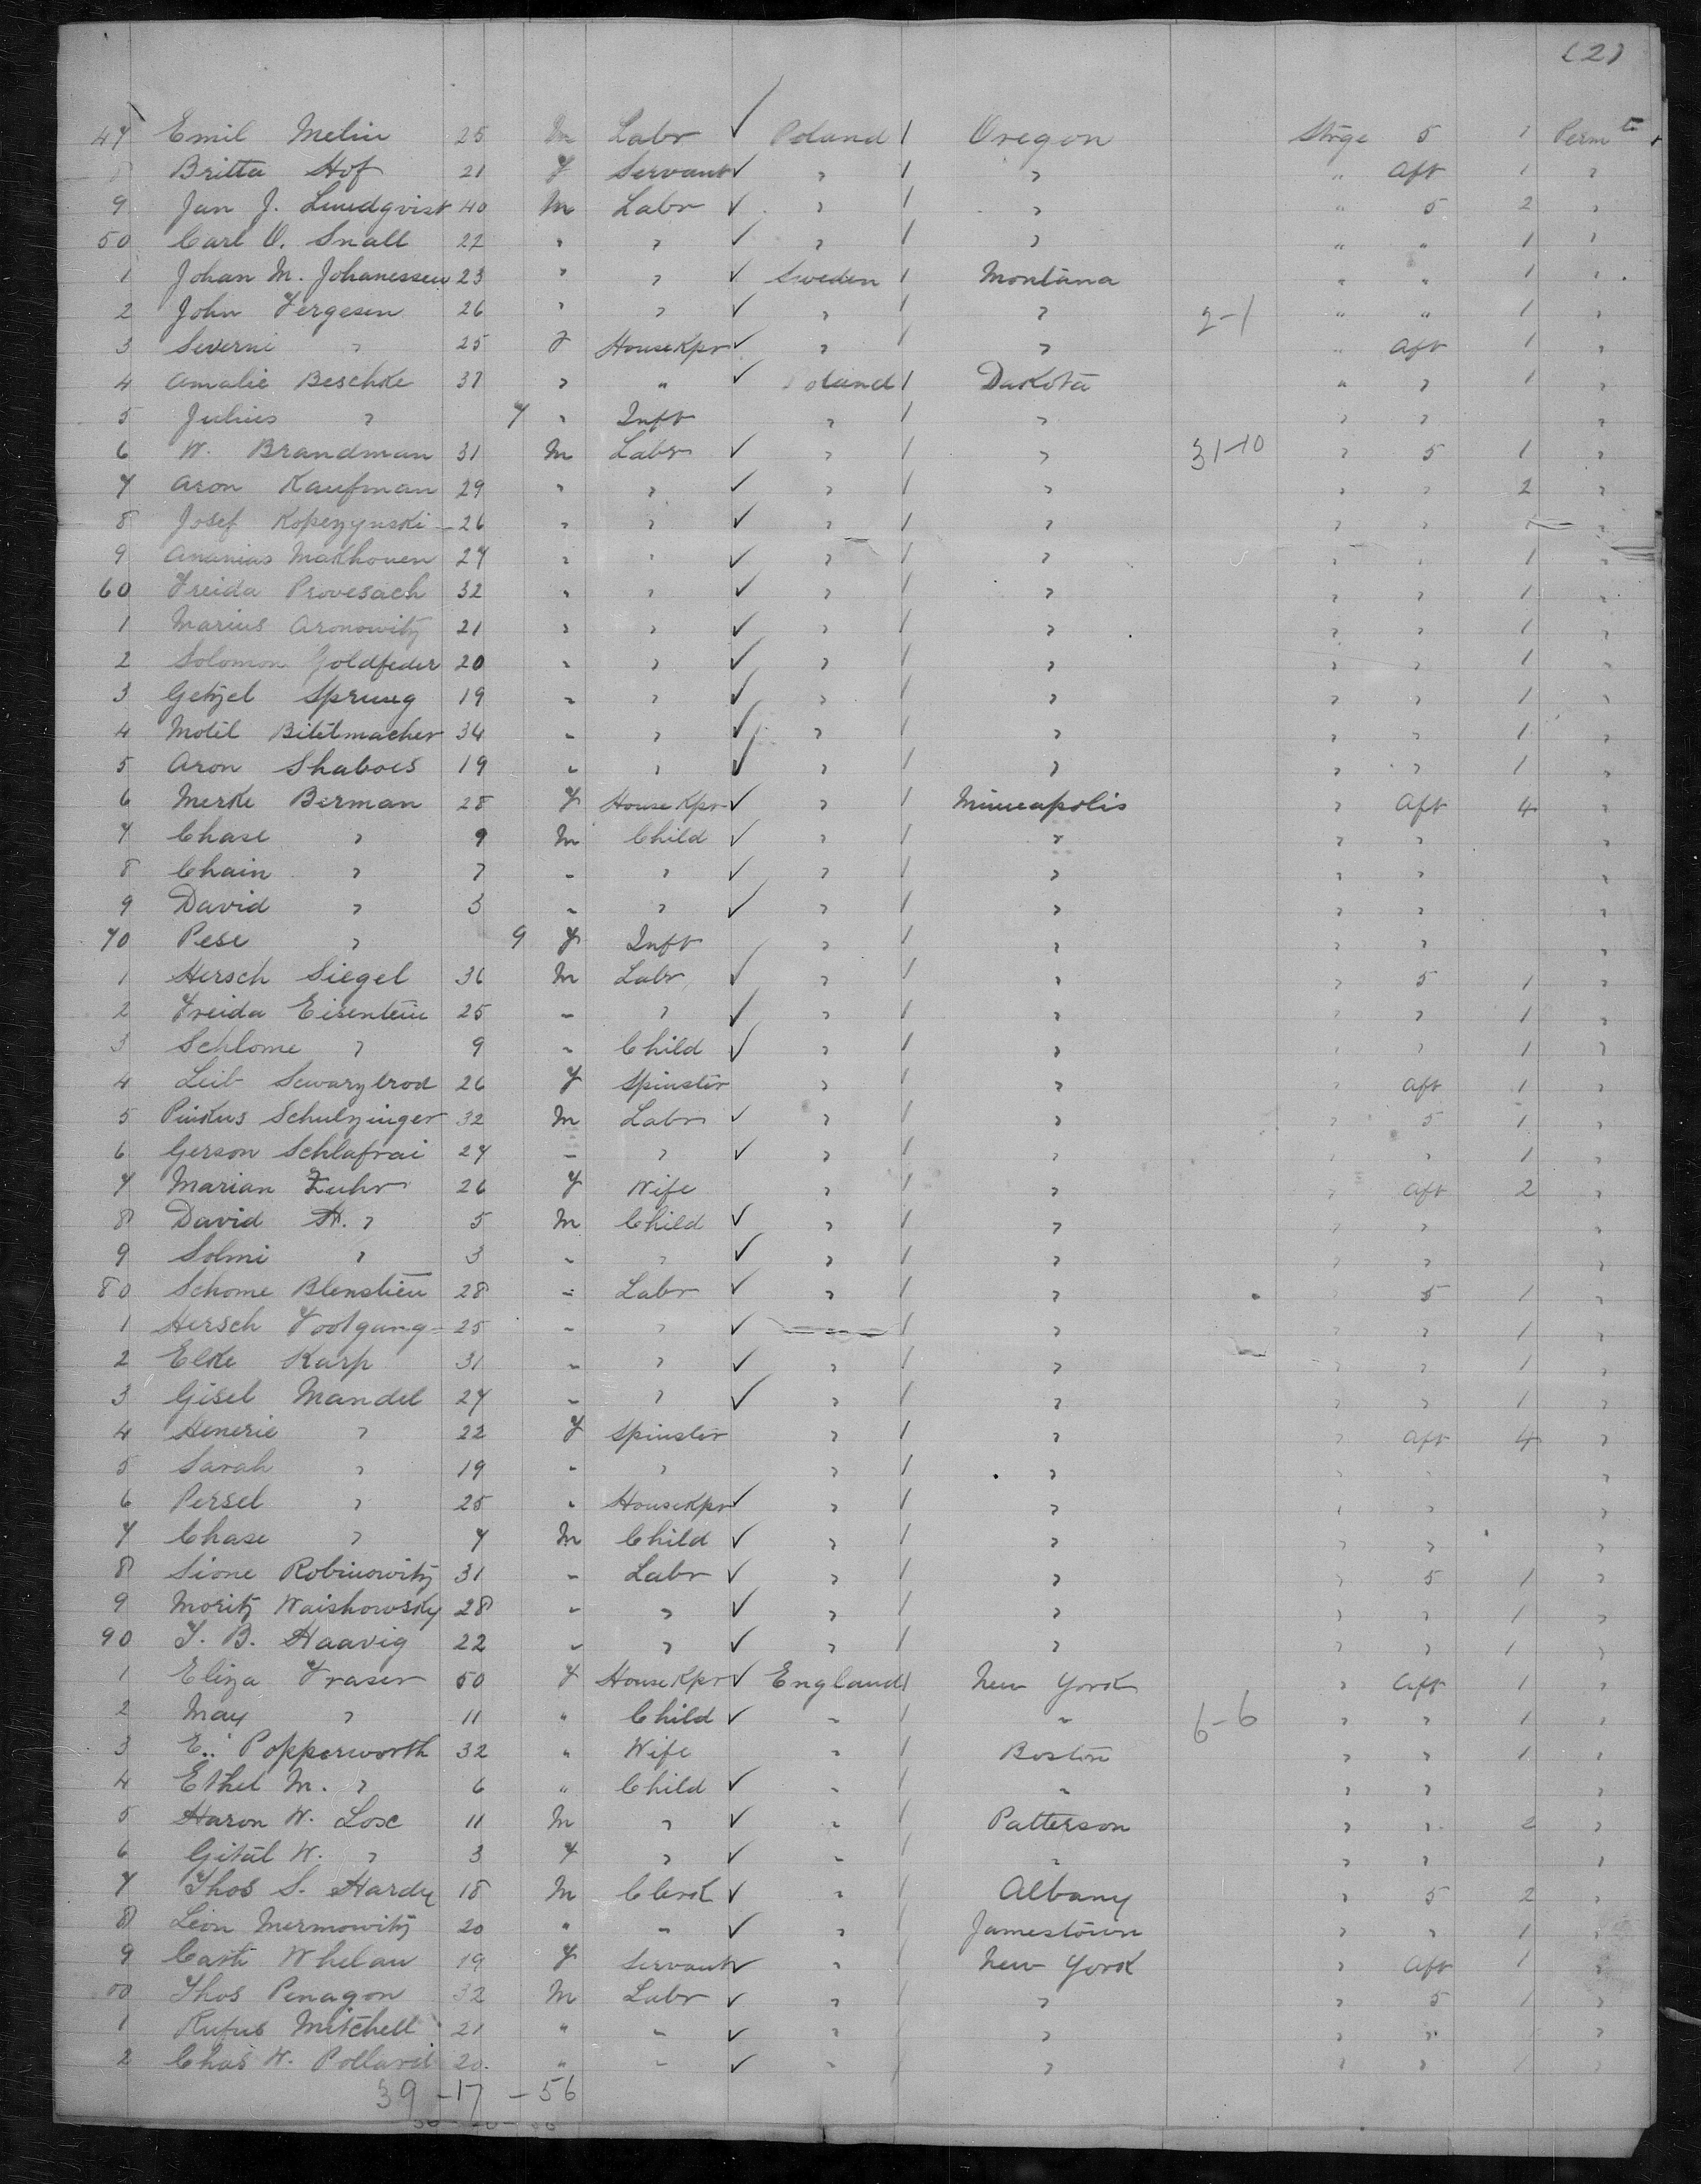 (2)
47 Emil Melin 25 M Labr ✓ Poland / Oregon Strge 5 1 Permt
8 Britta Hof 21 F Servant ✓ " / " " Aft 1 "
9 Jan J. Lundqvist 40 M Labr ✓ " / " " 5 2 "
50 Carl O. Snall 22 " " ✓ " / " " " 1 "
1 Johan M. Johanessen 23 " " ✓ Sweden / Montana " " 1 "
2 John Fergesen 26 " " ✓ " / " 2-1 " " 1 "
3 Severni " 25 F HouseKpr ✓ " / " " Aft 1 "
4 Amalie Beschke 37 " " ✓ Poland / Dakota " " 1 "
5 Julius " 7 " Inft " / " " " "
6 W. Brandman 31 M Labr ✓ " / " 31-10 " 5 1 "
7 Aron Kaufman 29 " " ✓ " / " " " 2 "
8 Josef Kopezynski 26 " " ✓ " / " " " "
9 Ananias Makhonen 27 " " ✓ " / " " " 1 "
60 Freida Provesach 32 " " ✓ " / " " " 1 "
1 Marius Aronowitz 21 " " ✓ " / " " " 1 "
2 Solomon Goldfeder 20 " " ✓ " / " " " 1 "
3 Getzel Sprung 19 " " ✓ " / " " " 1 "
4 Motel Bitetmacher 34 " " ✓ " / " " " 1 "
5 Aron Shabois 19 " " ✓ " / " " " 1 "
6 Merke Berman 28 F House Kpr ✓ " / Minneapolis " Aft 4 "
7 Chase " 9 M Child ✓ " / " " " "
8 Chain " 7 " " ✓ " / " " " "
9 David " 3 " " ✓ " / " " " "
70 Pese " 9 F Inft " / " " " "
1 Hersch Siegel 36 M Labr ✓ " / " " 5 1 "
2 Freida Eisentein 25 " " ✓ " / " " " 1 "
3 Schlome " 9 " Child ✓ " / " " " 1 "
4 Leib Scwarzbrod 26 F Spinster " / " " Aft 1 "
5 Pinkus Schulzinger 32 M Labr ✓ " / " " 5 1 "
6 Gerson Schlafrai 27 " " ✓ " / " " " 1 "
7 Marian Zuhr 26 F Wife " / " " Aft 2 "
8 David H. " 5 M Child ✓ " / " " " "
9 Solmi " 3 " " ✓ " / " " " "
80 Schome Blenstein 28 " Labr ✓ " / " " 5 1 "
1 Hersch Footgang 25 " " ✓ " / " " " 1 "
2 Elke Karp 31 " " ✓ " / " " " 1 "
3 Gisel Mandel 27 " " ✓ " / " " " 1 "
4 Henerie " 22 F Spinster " / " " Aft 4 "
5 Sarah " 19 " " " / " " " "
6 Persel " 25 " HouseKpr ✓ " / " " " "
7 Chase " 7 M Child ✓ " / " " " "
8 Sione Robinowitz 31 " Labr ✓ " / " " 5 1 "
9 Moritz Waishowsky 28 " " ✓ " / " " " 1 "
90 T. B. Haavig 22 " " ✓ " / " " " 1 "
1 Eliza Fraser 50 F HouseKpr ✓ England / New York " Aft 1 "
2 May " 11 " Child ✓ " / " 6-6 " " 1 "
3 E. Popperworth 32 " Wife " / Boston " " 1 "
4 Ethel M. " 6 " Child ✓ " / " " " "
5 Haron W. Lose 11 M " ✓ " / Patterson " " 2 "
6 Gital W. " 3 F " ✓ " / " " " "
7 Thos S. Hardy 18 M Clerk ✓ " / Albany " 5 2 "
8 Leon Mermowitz 20 " " ✓ " / Jamestown " " 1 "
9 Cath Whelan 19 F Servant ✓ " / New York " Aft 1 "
00 Thos Penagon 32 M Labr ✓ " / " " 5 1 "
1 Rufus Mitchell 21 " " ✓ " / " " " "
2 Chas W. Pollard 20 " " ✓ " / " " " 1 "
39 - 17 - 56